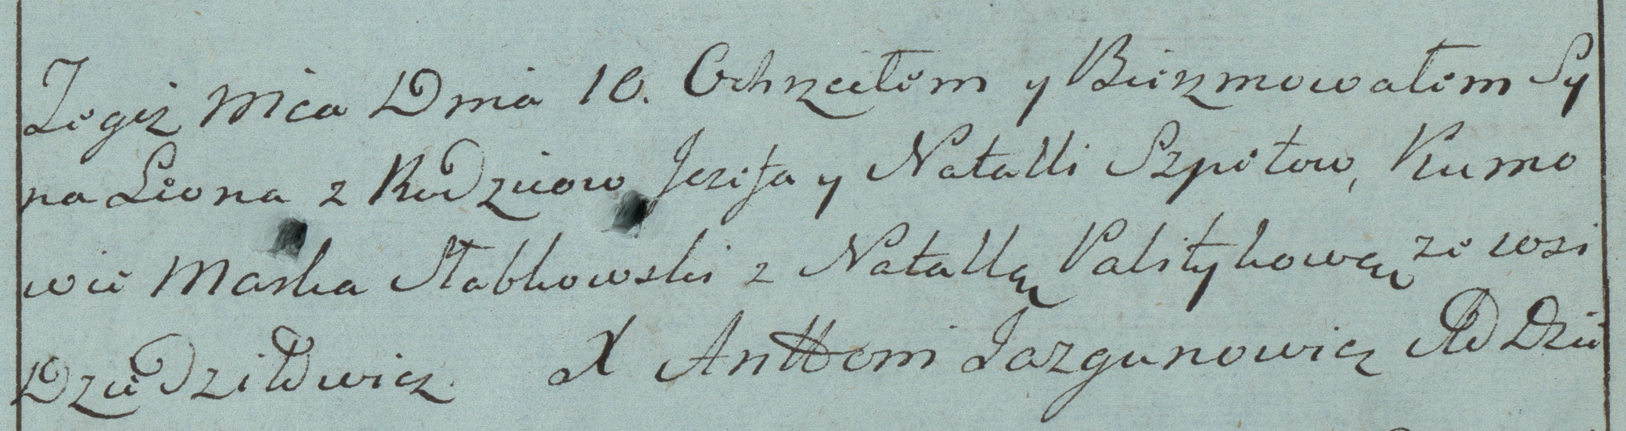 Tegiż Mca Dnia 10. Ochrzciłem y Bierzmowałem Sy
na Leona z Rodziców Jozefa y Natalli Szpetow, Kumo
wie Marka Słabkowski z Natallą Palitykową ze wsi
Dziedziłowicz. X Anttoni Jazgunowicz AD Dzie